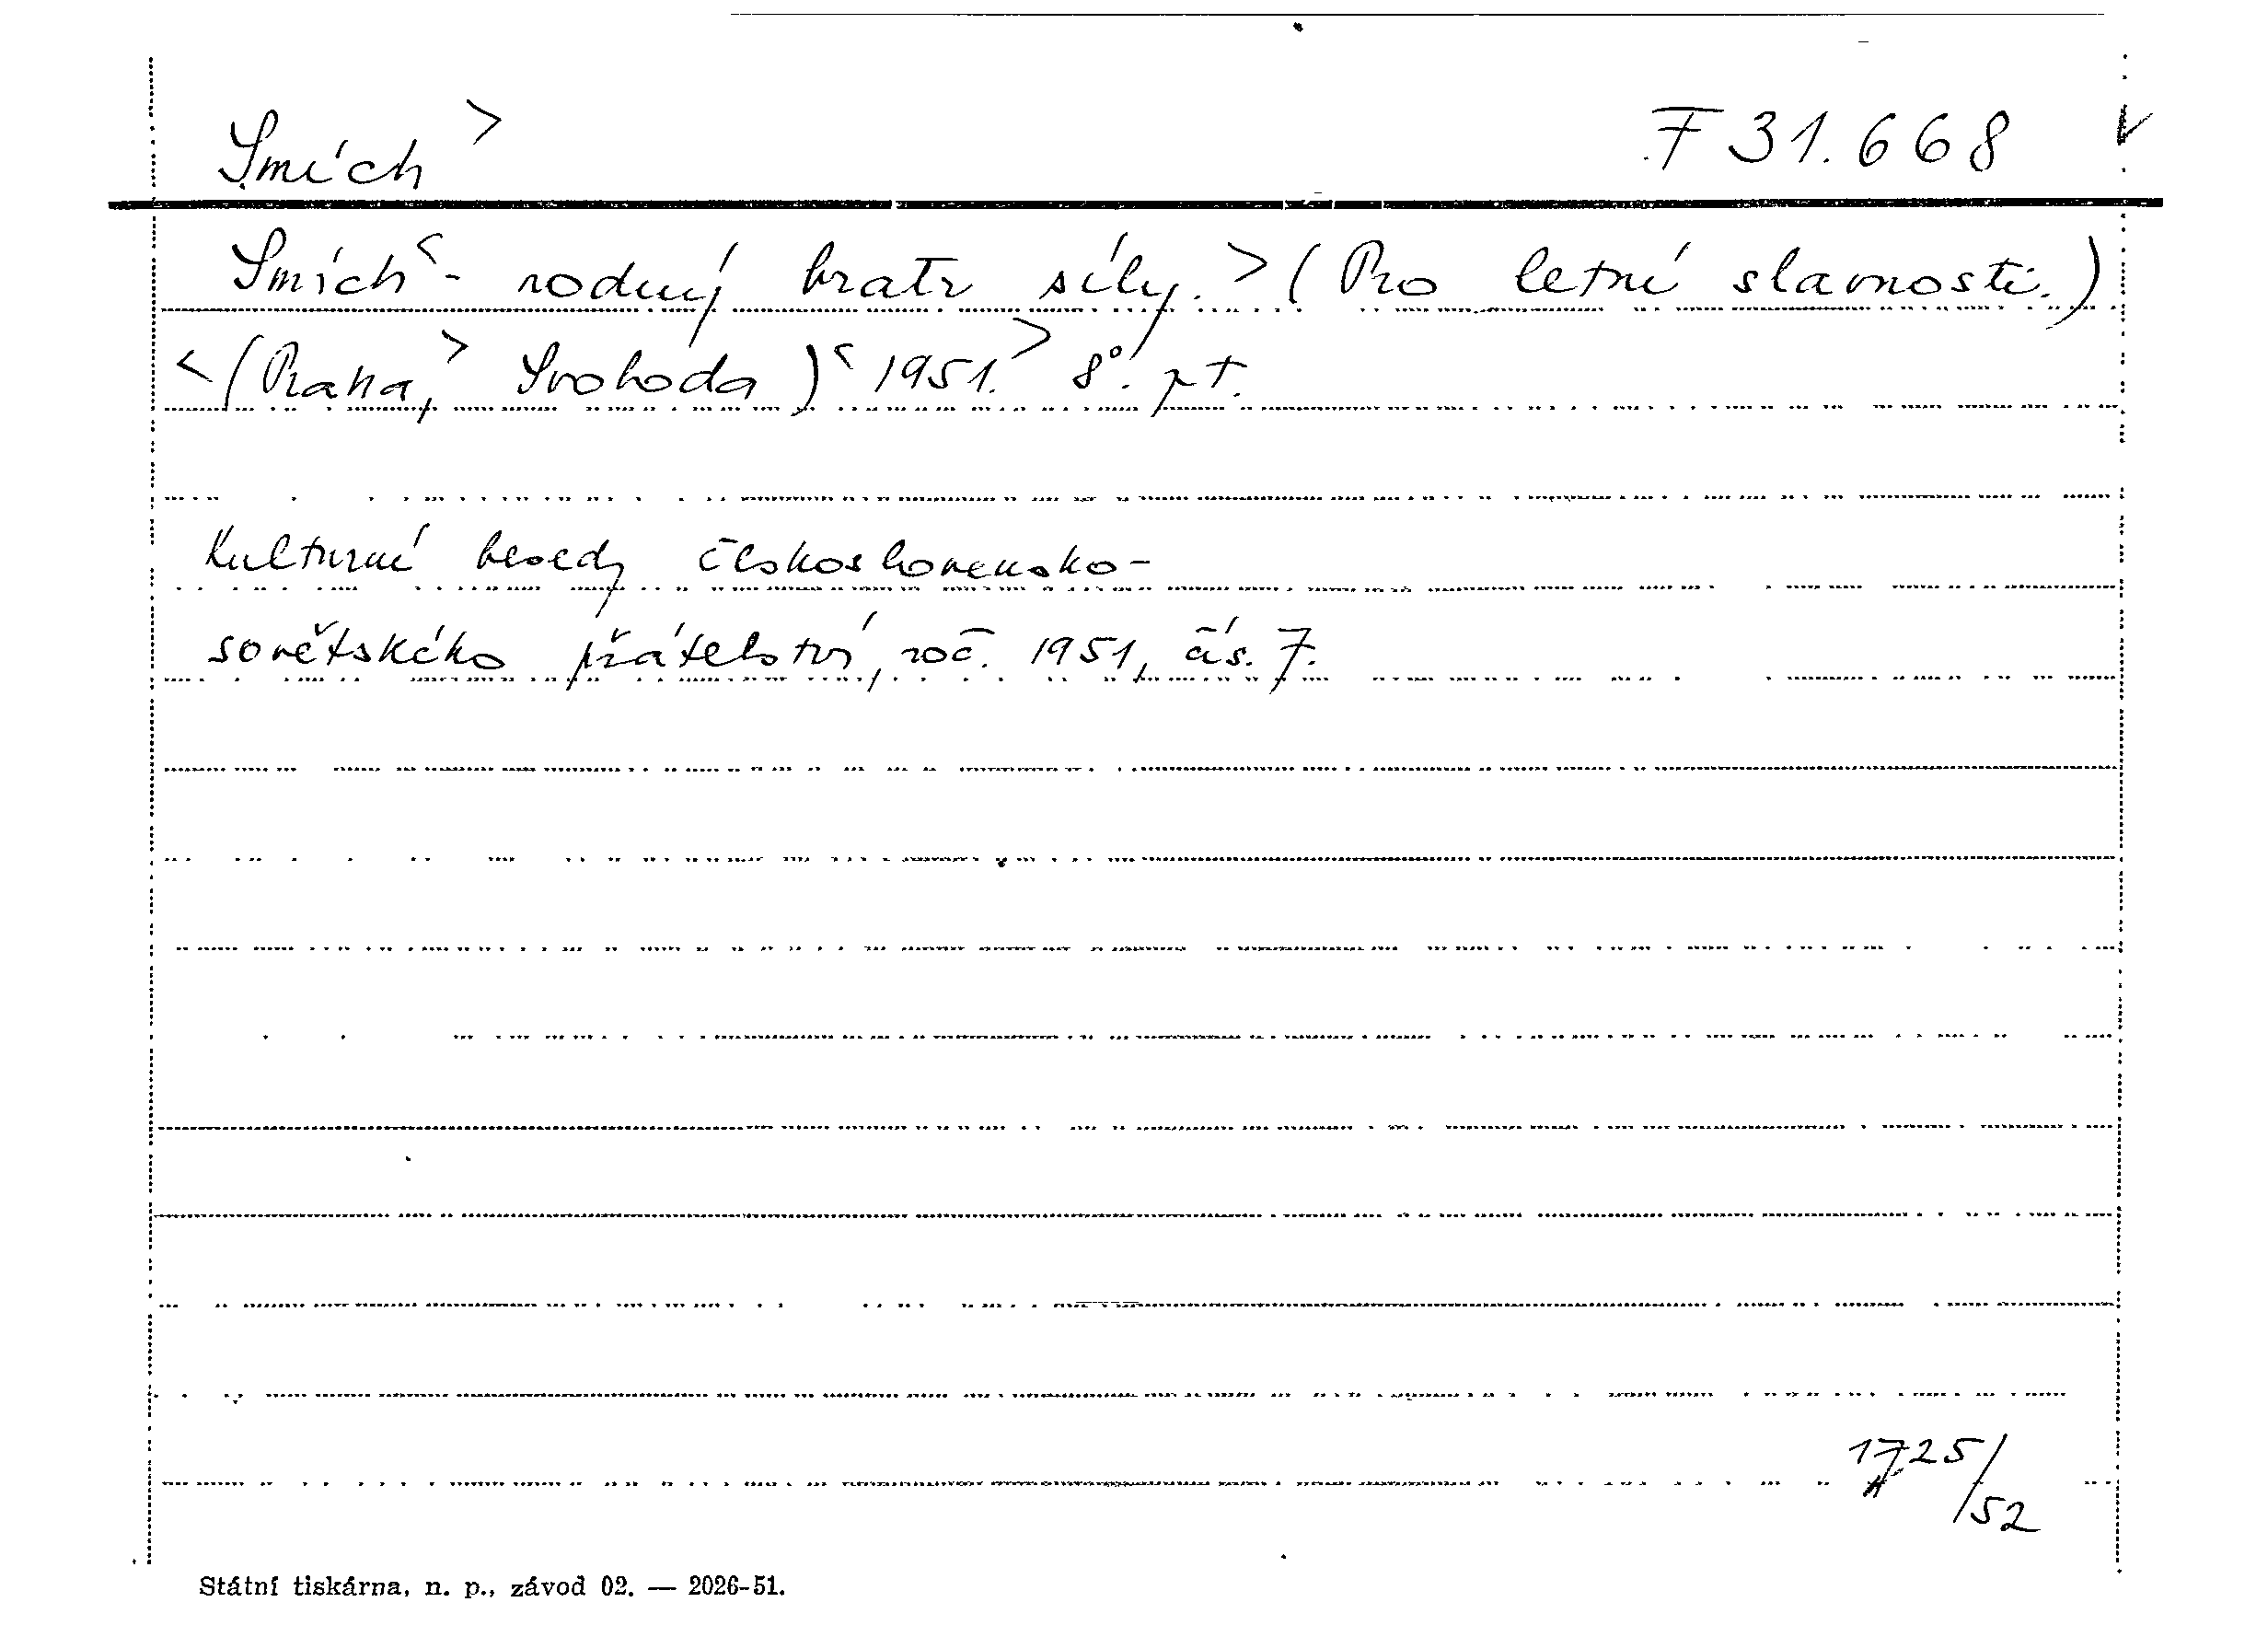 Smích > F 31.668 V
Smích < - rodný bratr síly. > (Pro letní slavnosti.)
< (Praha, > Svoboda) < 1951. > 8°. pt.
Kulturní besedy československo-
sovětského přátelství, roč. 1951, čís. 7.
1725/52
Státní tiskárna, n. p., závod 02. — 2026-51.